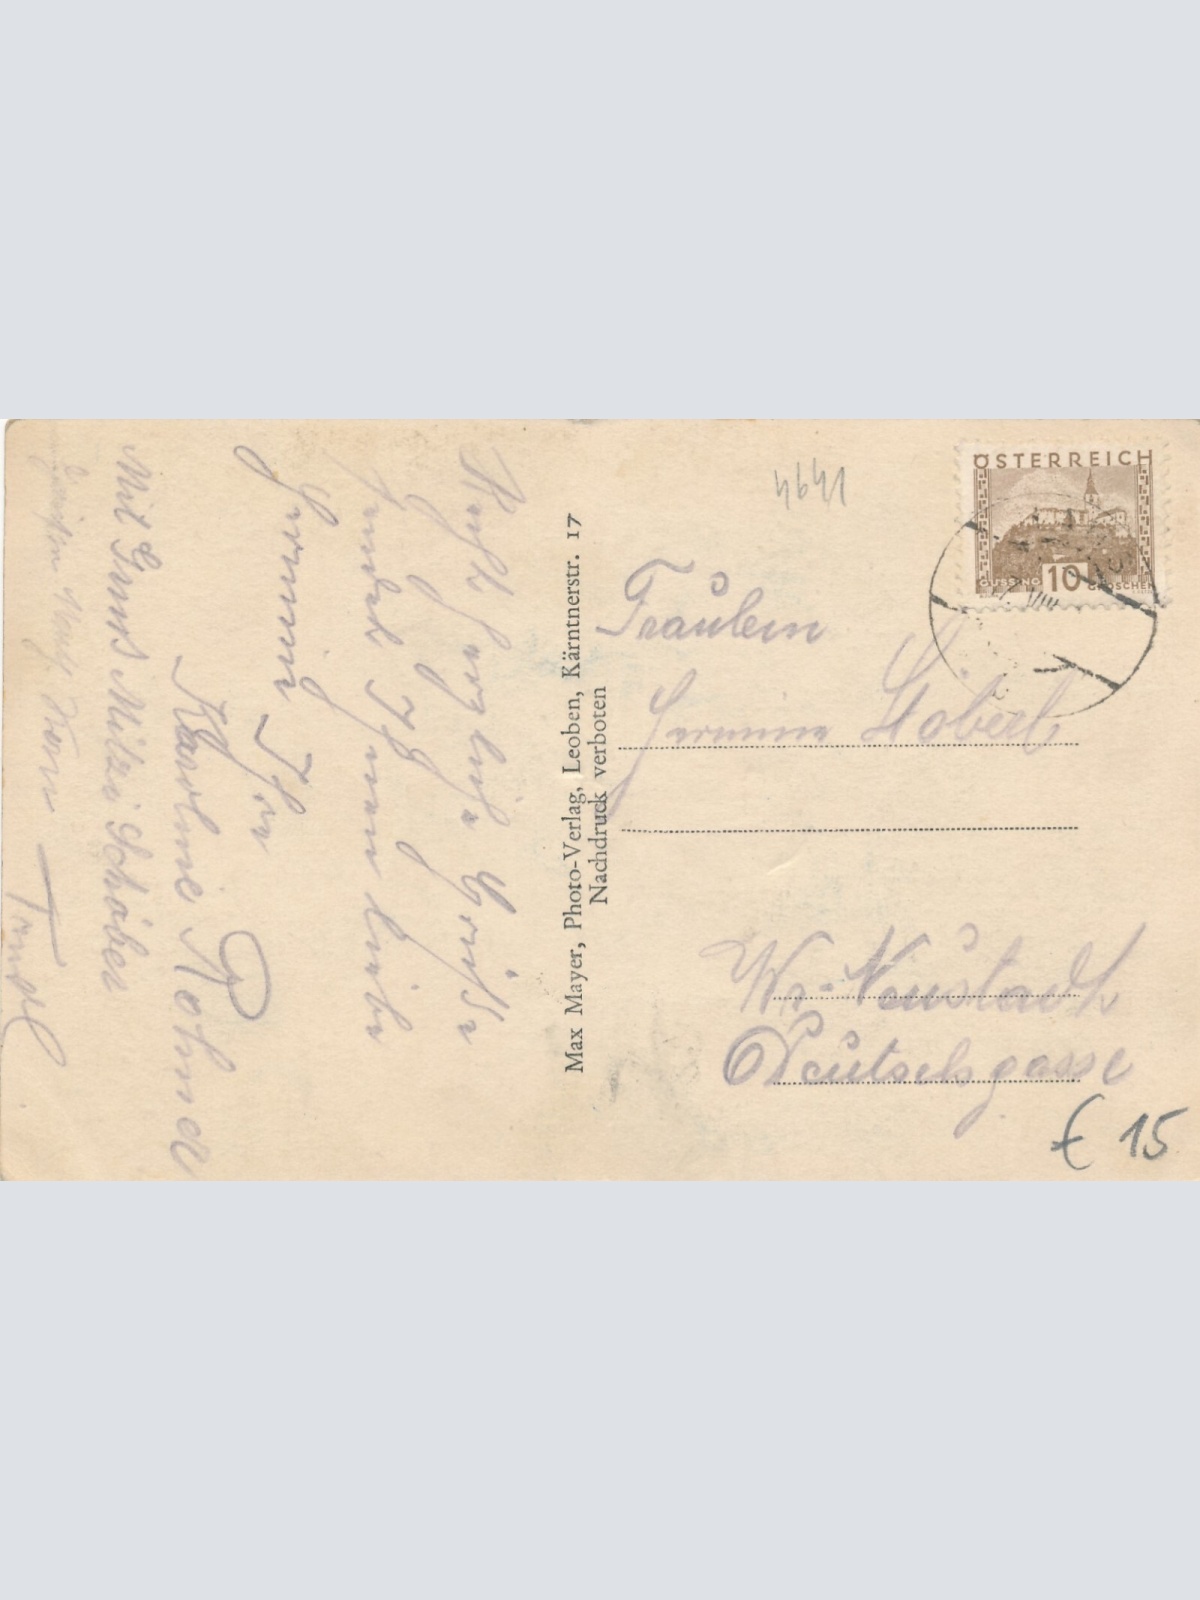 Recht herzliche Grüße
sendet Ihnen liebe
Hermine Ihre
Karoline
Mit Gruss Mitzi Schober
Max Mayer, Photo-Verlag, Leoben, Kärntnerstr. 17
Nachdruck verboten
4641
ÖSTERREICH
GÜSSING 10 GROSCHEN
Fräulein
Hermine Stöberl
Wr. Neustadt
Deutschgasse
€ 15